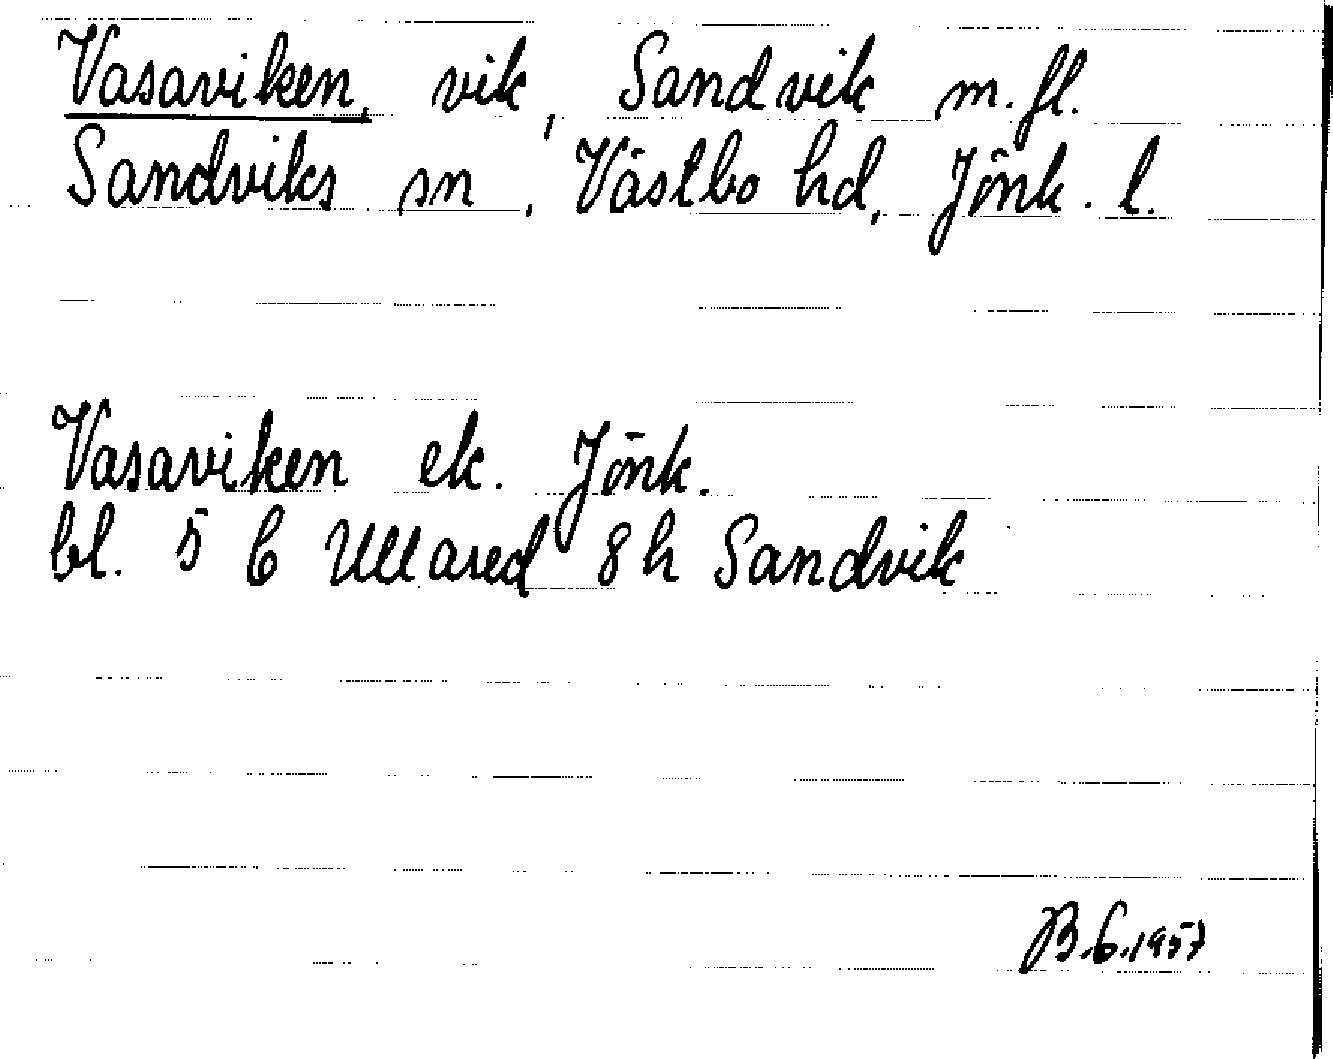 Vasaviken, vik, Sandvik m.fl.
Sandviks sn, Västbo hd, Jönk. l.
Vasaviken ek. Jönk.
bl. 5 C Ullared 8 h Sandvik
B.C.1957